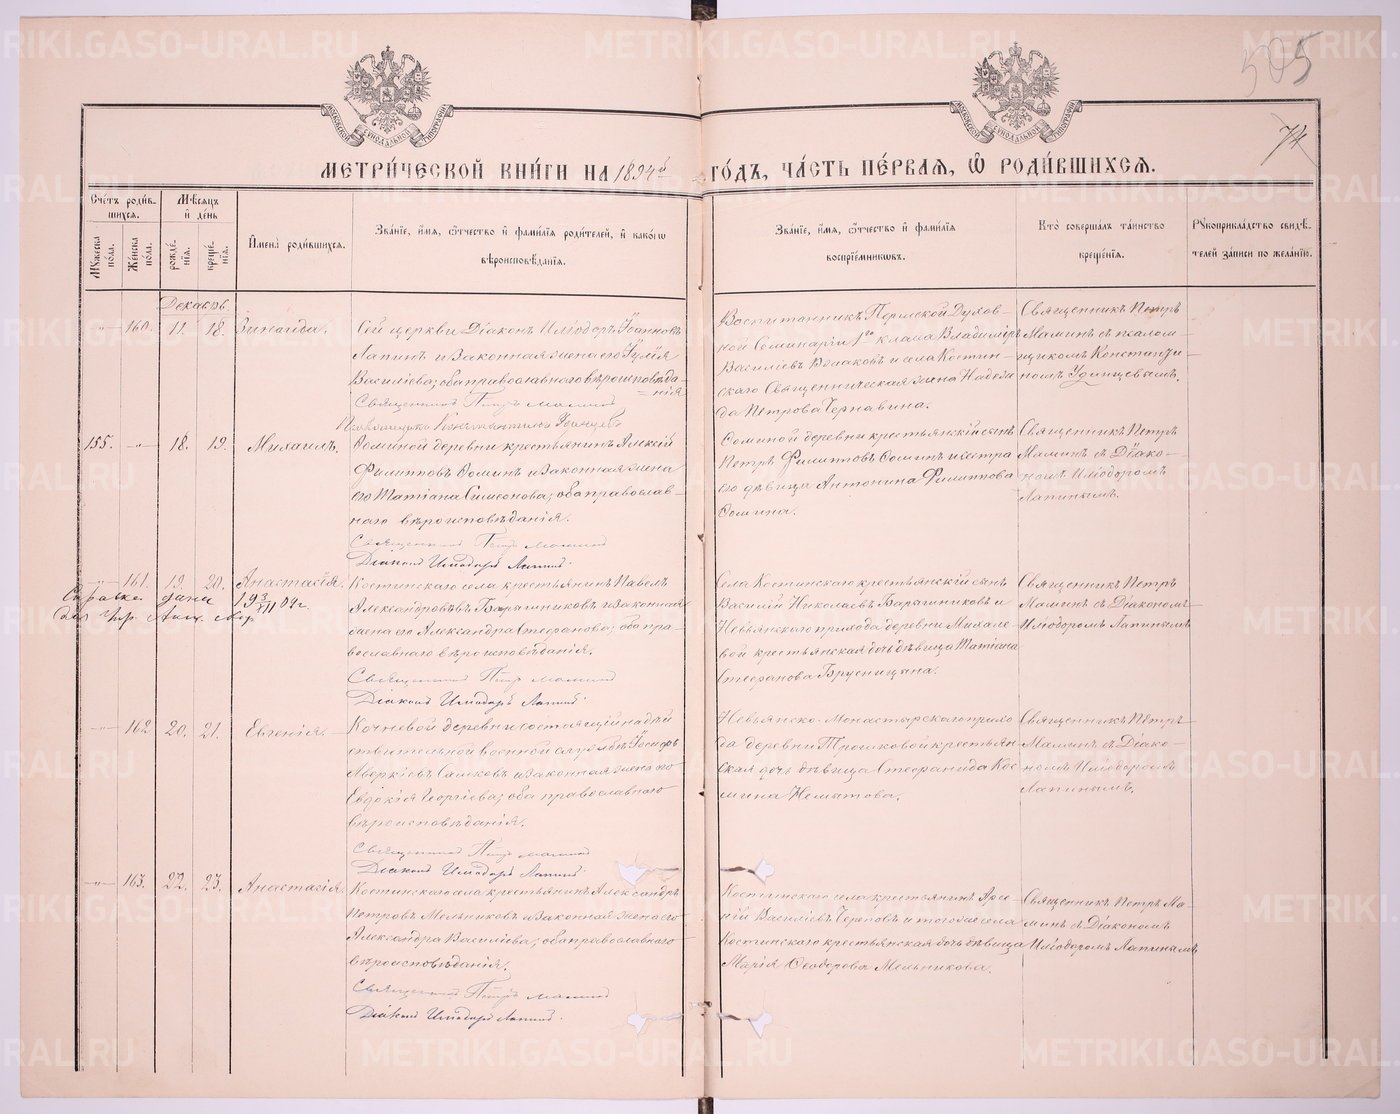 505
74
МЕТРИ́ЧЕСКОЙ КНИ́ГИ НА 1894й ГО́ДЪ, ЧА́СТЬ ПЕ́РВАѦ, Ѡ҆ РОДИ́ВШИХСѦ.
Сче́тъ роди́вшихсѧ.
Мѣ́сѧцъ и҆ де́нь
Мꙋ́жеска по́ла.
Же́нска по́ла.
рожде́нїѧ.
креще́нїѧ.
И҆мена̀ роди́вшихсѧ.
Зва́нїе, и҆́мѧ, ѻ҆́тчество и҆ фами́лїѧ роди́телей, и҆ како́гѡ вѣроисповѣ́данїѧ.
Зва́нїе, и҆́мѧ, ѻ҆́тчество и҆ фами́лїѧ воспрїе́мникѡвъ.
Кто̀ соверша́лъ та́инство креще́нїѧ.
Рꙋкоприкла́дство свидѣ́телей за́писи по жела́нїю.
Декабрь.
„ 160. 11. 18. Зинаида.
Сей церкви Діаконъ Иліодоръ Іоанновъ
Лапинъ и законная жена его Іулія
Василіева; оба православнаго вѣроисповѣда-
нія
Священникъ Петръ Маминъ
Псаломщикъ Константинъ Удинцевъ
Воспитанникъ Пермской Духов-
ной Семинаріи 1го класса Владиміръ
Василіевъ и села Костин-
скаго Священническая жена Надеж-
да Петрова Чернавина.
Священникъ Петръ
Маминъ съ псалом-
щикомъ Константи-
номъ Удинцевымъ.
155. „ 18. 19. Михаилъ.
Ѳоминой деревни крестьянинъ Алексій
Филипповъ Ѳоминъ и законная жена
его Татіана Симеонова; оба православ-
наго вѣроисповѣданія.
Священникъ Петръ Маминъ
Діаконъ Иліодоръ Лапинъ.
Ѳоминой деревни крестьянскій сынъ
Петръ Филипповъ Ѳоминъ и сестра
его дѣвица Антонина Филиппова
Ѳомина.
Священникъ Петръ
Маминъ съ Діако-
номъ Иліодоромъ
Лапинымъ.
„ 161. 19. 20. Анастасія.
Справка дана 19 3/XII 04 г.
для
Костинскаго села крестьянинъ Павелъ
Александровъ Барышниковъ и законная
жена его Александра Стефанова; оба пра-
вославнаго вѣроисповѣданія.
Священникъ Петръ Маминъ
Діаконъ Иліодоръ Лапинъ.
Села Костинскаго крестьянскій сынъ
Василій Николаевъ Барышниковъ и
Невьянскаго прихода деревни Михале-
вой крестьянская дочь дѣвица Татіана
Стефанова Брусницына.
Священникъ Петръ
Маминъ съ Діакономъ
Иліодоромъ Лапинымъ
„ 162 20. 21. Евгенія.
Кочневой деревни состоящій на дѣй-
ствительной военной службѣ Іосифъ
Аверкіевъ и законная жена его
Евдокія Георгіева; оба православнаго
вѣроисповѣданія.
Священникъ Петръ Маминъ
Діаконъ Иліодоръ Лапинъ.
Невьянско-Монастырскаго прихо-
да деревни Трошковой крестьян-
ская дочь дѣвица Стефанида Кос-
мина Немытова.
Священникъ Петръ
Маминъ съ Діако-
номъ Иліодоромъ
Лапинымъ.
„ 163. 22. 23. Анастасія.
Костинскаго села крестьянинъ Александръ
Петровъ Мельниковъ и законная жена его
Александра Василіева; оба православнаго
вѣроисповѣданія.
Священникъ Петръ Маминъ
Діаконъ Иліодоръ Лапинъ.
Костинскаго села крестьянинъ Арсе-
ній Василіевъ Черепов и того же села
Костинскаго крестьянская дочь дѣвица
Марія Ѳеодорова Мельникова.
Священникъ Петръ Ма-
минъ съ Діакономъ
Иліодоромъ Лапинымъ